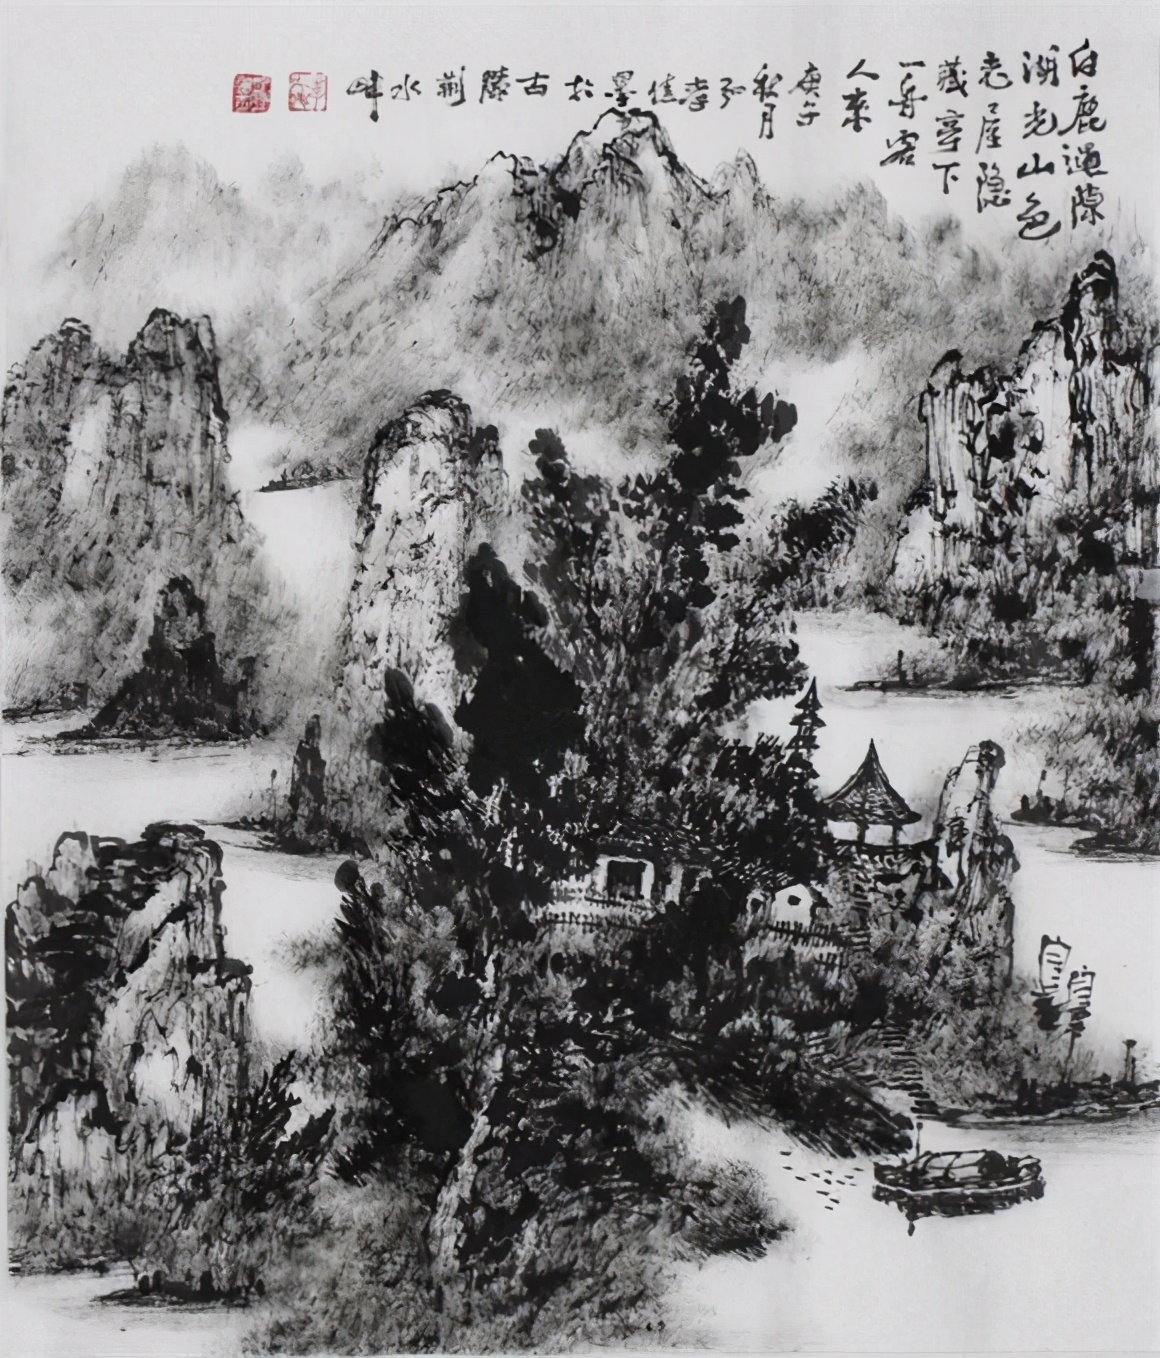 白鹿過隙
湖光山色
老屋隐
藏亭下
一舟客
人来
庚午
秋月
孝
墨
於
古
滕
荆
水
畔